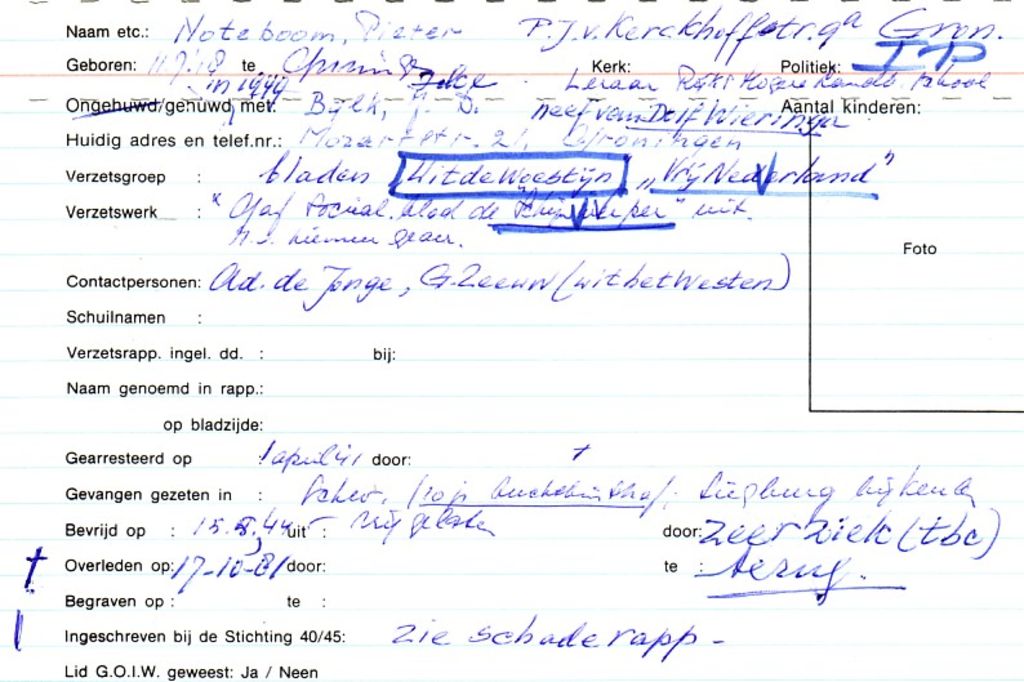 Naam etc.: Noteboom, Pieter P.J.v.Kerckhoffstr.9a Gron.
Geboren: te Kerk: Politiek: IP
in 1949 Leraar Rijks Hogere Handelsschool
Ongehuwd/gehuwd met: neef van Dolf Wieringa Aantal kinderen:
Huidig adres en telef.nr.: Mozartstr. 21, Groningen
Verzetsgroep : bladen Uit de Woestijn „Vrij Nederland"
Verzetswerk : blad de uit.
Foto
Contactpersonen: Ad. de Jonge, G. Zeeuw (uit het Westen)
Schuilnamen :
Verzetsrapp. ingel. dd. : bij:
Naam genoemd in rapp.:
op bladzijde:
Gearresteerd op 1 april 41 door:
Gevangen gezeten in : Siegburg
Bevrijd op : 15.8.44 uit : vrijgelaten door: zeer ziek (tbc)
† Overleden op: 17-10-81 door: te : terug.
Begraven op : te :
Ingeschreven bij de Stichting 40/45: Zie schaderapp -
Lid G.O.I.W. geweest: Ja / Neen